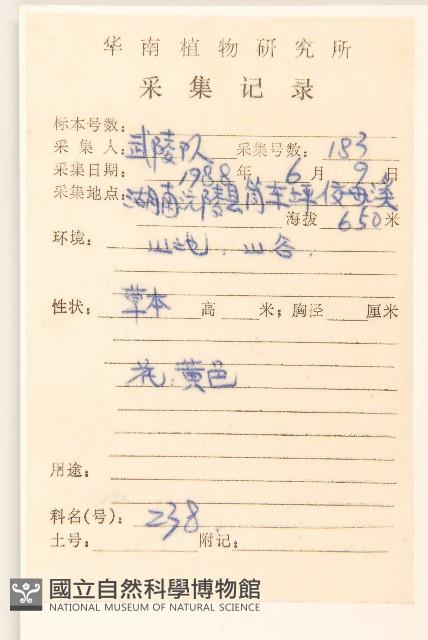 华南植物研究所
采集记录
标本号数:
采集人: 武陵队 采集号数: 183
采集日期: 1988年 6月 9日
采集地点: 湖南沅陵县筒车坪
海拔 650米
环境: 山地. 山谷.
性状: 草本 高 米; 胸径 厘米
花:黄色
用途:
科名(号): 238
土号: 附记:
國立自然科學博物館
NATIONAL MUSEUM OF NATURAL SCIENCE